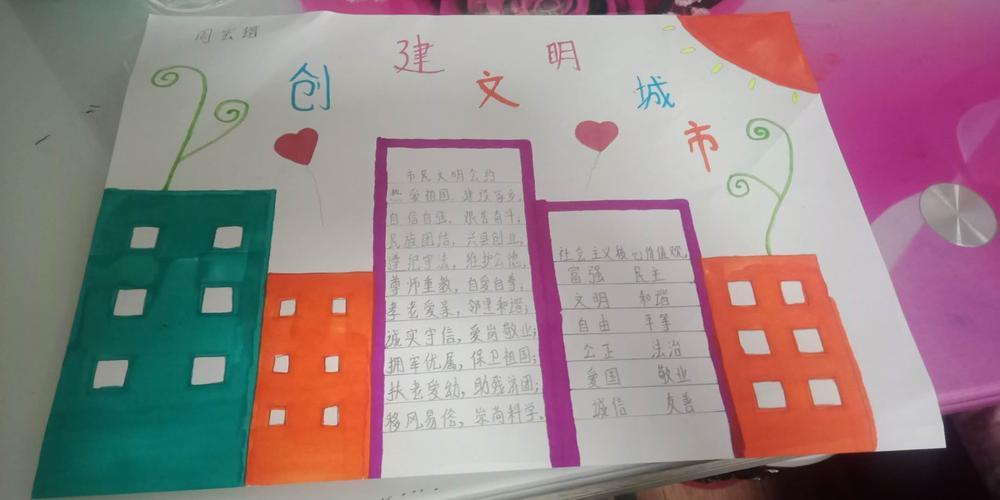 周宏
创建文明城市
市民文明公约
热爱祖国，建设家乡；
自信自强，艰苦奋斗；
民族团结，兴县创业；
遵纪守法，维护公德；
尊师重教，自爱自尊；
孝老爱亲，邻里和谐；
诚实守信，爱岗敬业；
拥军优属，保卫祖国；
扶老爱幼，助残济困；
移风易俗，崇尚科学。
社会主义核心价值观
富强 民主
文明 和谐
自由 平等
公正 法治
爱国 敬业
诚信 友善